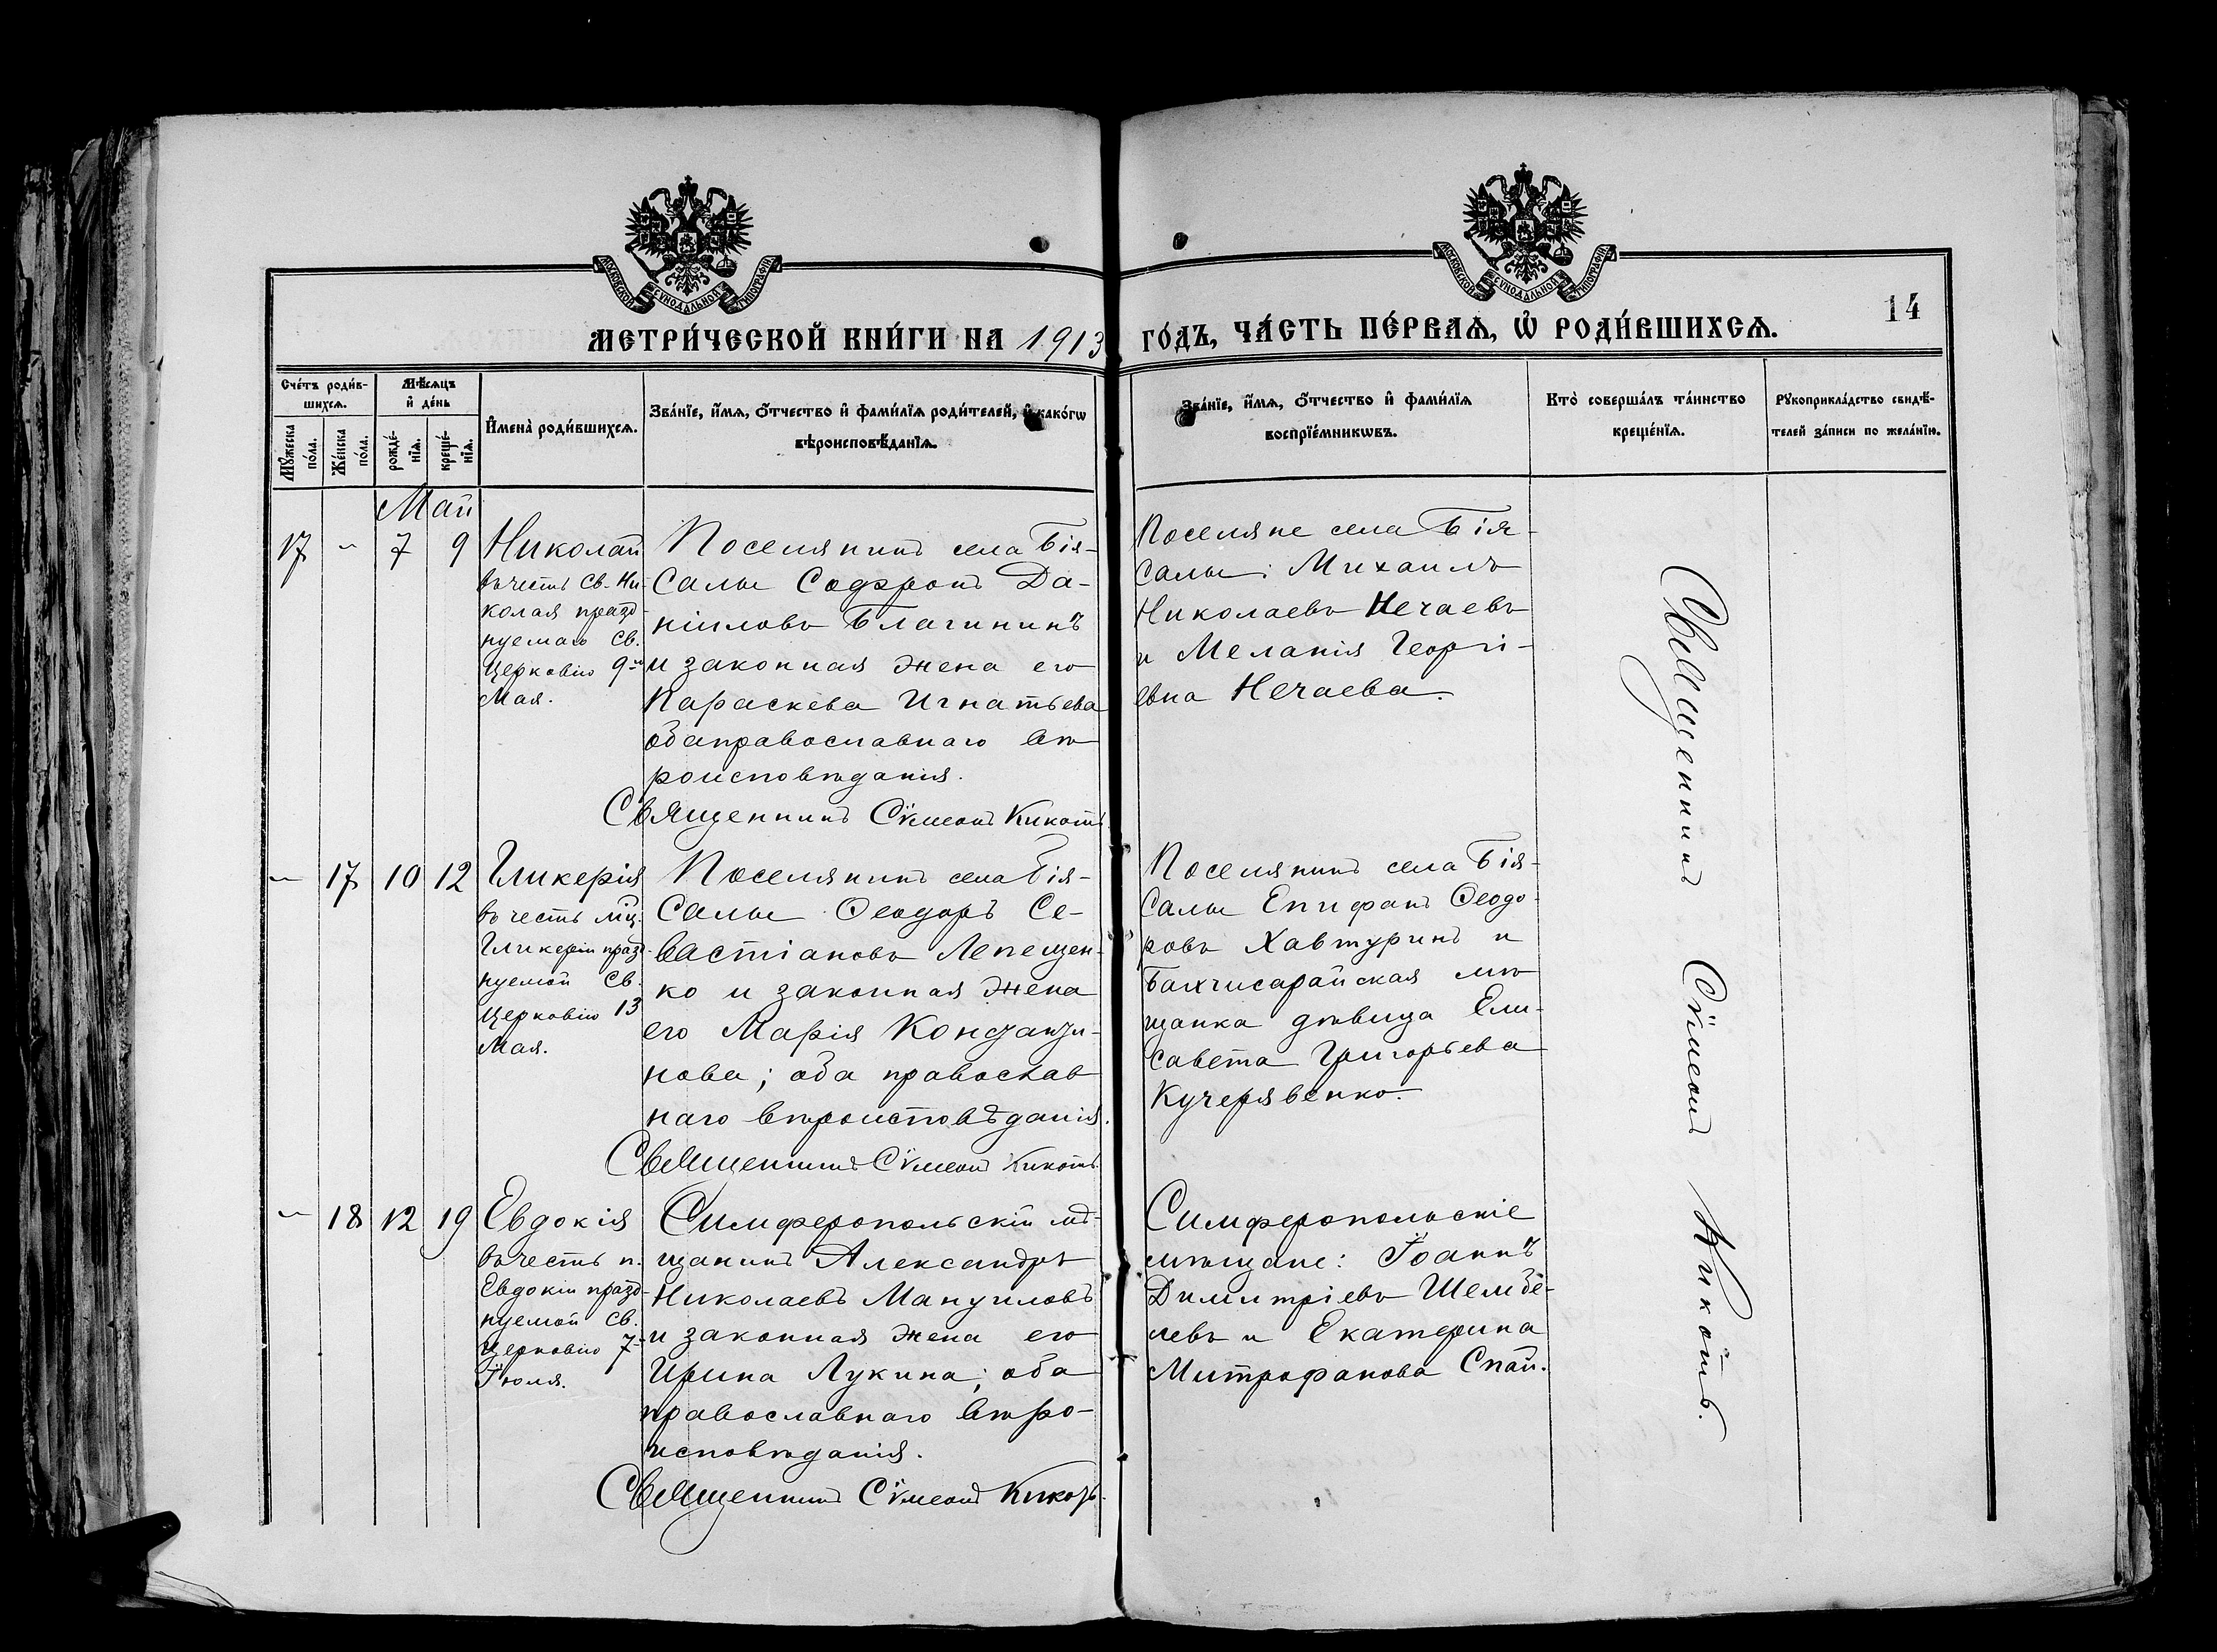 МОСКОВСКОЙ СѴНОДАЛЬНОЙ ТИПОГРАФІИ
МОСКОВСКОЙ СѴНОДАЛЬНОЙ ТИПОГРАФІИ
МЕТРИ́ЧЕСКОЙ КНИ́ГИ НА 1913 ГО́ДЪ, ЧА́СТЬ ПЕ́РВАѦ, Ѡ҆ РОДИ́ВШИХСѦ.
14
Сче́тъ роди́в-
шихсѧ.
Мꙋ́жеска по́ла.
Же́нска по́ла.
Мѣ́сѧцъ
и҆ де́нь
рожде́-
нїѧ.
креще́-
нїѧ.
И҆мена̀ роди́вшихсѧ.
Зва́нїе, и҆́мѧ, ѻ҆́тчество и҆ фами́лїѧ роди́телей, и҆ како́гѡ
вѣроисповѣ́данїѧ.
Зва́нїе, и҆́мѧ, ѻ҆́тчество и҆ фами́лїѧ
воспрїе́мникѡвъ.
Кто̀ соверша́лъ та́инство
креще́нїѧ.
Рꙋкоприкла́дство свидѣ́-
телей за́писи по жела́нїю.
Май
17 - 7 9
Николай
въ честь Св. Ни-
колая празд-
нуемаго Св.
Церковію 9-го
Мая.
Поселянинъ села Бія-
Салы Софронъ Да-
ніиловъ Благининъ
и законная жена его
Параскева Игнатьева
оба православнаго вѣ-
роисповѣданія.
Священникъ Сѷмеонъ Кикоть
Поселяне села Бія-
Салы: Михаилъ
Николаевъ Нечаевъ
и Меланія Георгі-
евна Нечаева.
- 17 10 12
Гликерія
въ честь мц.
Гликеріи празд-
нуемой Св.
Церковію 13
Мая.
Поселянинъ села Бія-
Салы Ѳеодоръ Се-
вастіановъ Лепещен-
ко и законная жена
его Марія
нова; оба православ
наго вѣроисповѣданія.
Священникъ Сѷмеонъ Кикоть.
Поселянинъ села Бія-
Салы Епифанъ Ѳеодо-
ровъ Хавтуринъ и
Бахчисарайская мѣ
щанка дѣвица Ели-
савета Григорьева
Кучерявенко.
- 18 12 19
Евдокія
въ честь п.
Евдокіи празд-
нуемой Св.
Церковію 7-
Іюля.
Симферопольскій мѣ-
щанинъ Александръ
Николаевъ Мануиловъ
и законная жена его
Ирина Лукина; оба
православнаго вѣро-
исповѣданія.
Священникъ Сѷмеонъ Кикоть.
Симферопольскіе
мѣщане: Іоаннъ
Димитріевъ Шембе-
левъ и Екатерина
Митрофанова Спай.
Священникъ Сѷмеонъ Кикоть.